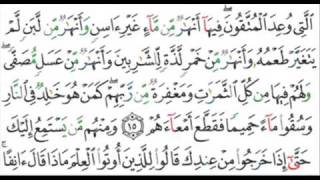 الَّتِي وُعِدَ الْمُتَّقُونَ فِيهَا أَنْهَارٌ مِّن مَّاءٍ غَيْرِ ءَاسِنٍ وَأَنْهَارٌ مِّن لَّبَنٍ لَّمْ
يَتَغَيَّرْ طَعْمُهُ وَأَنْهَارٌ مِّنْ خَمْرٍ لَّذَّةٍ لِّلشَّارِبِينَ وَأَنْهَارٌ مِّنْ عَسَلٍ مُّصَفًّى
وَلَهُمْ فِيهَا مِن كُلِّ الثَّمَرَتِ وَمَغْفِرَةٌ مِّن رَّبِّهِمْ كَمَنْ هُوَ خَالِدٌ فِي النَّارِ
وَسُقُوا مَاءً حَمِيمًا فَقَطَّعَ أَمْعَاءَهُمْ ١٥ وَمِنْهُم مَّن يَسْتَمِعُ إِلَيْكَ
حَتَّى إِذَا خَرَجُوا مِنْ عِندِكَ قَالُوا لِلَّذِينَ أُوتُوا الْعِلْمَ مَاذَا قَالَ ءَانِفًا